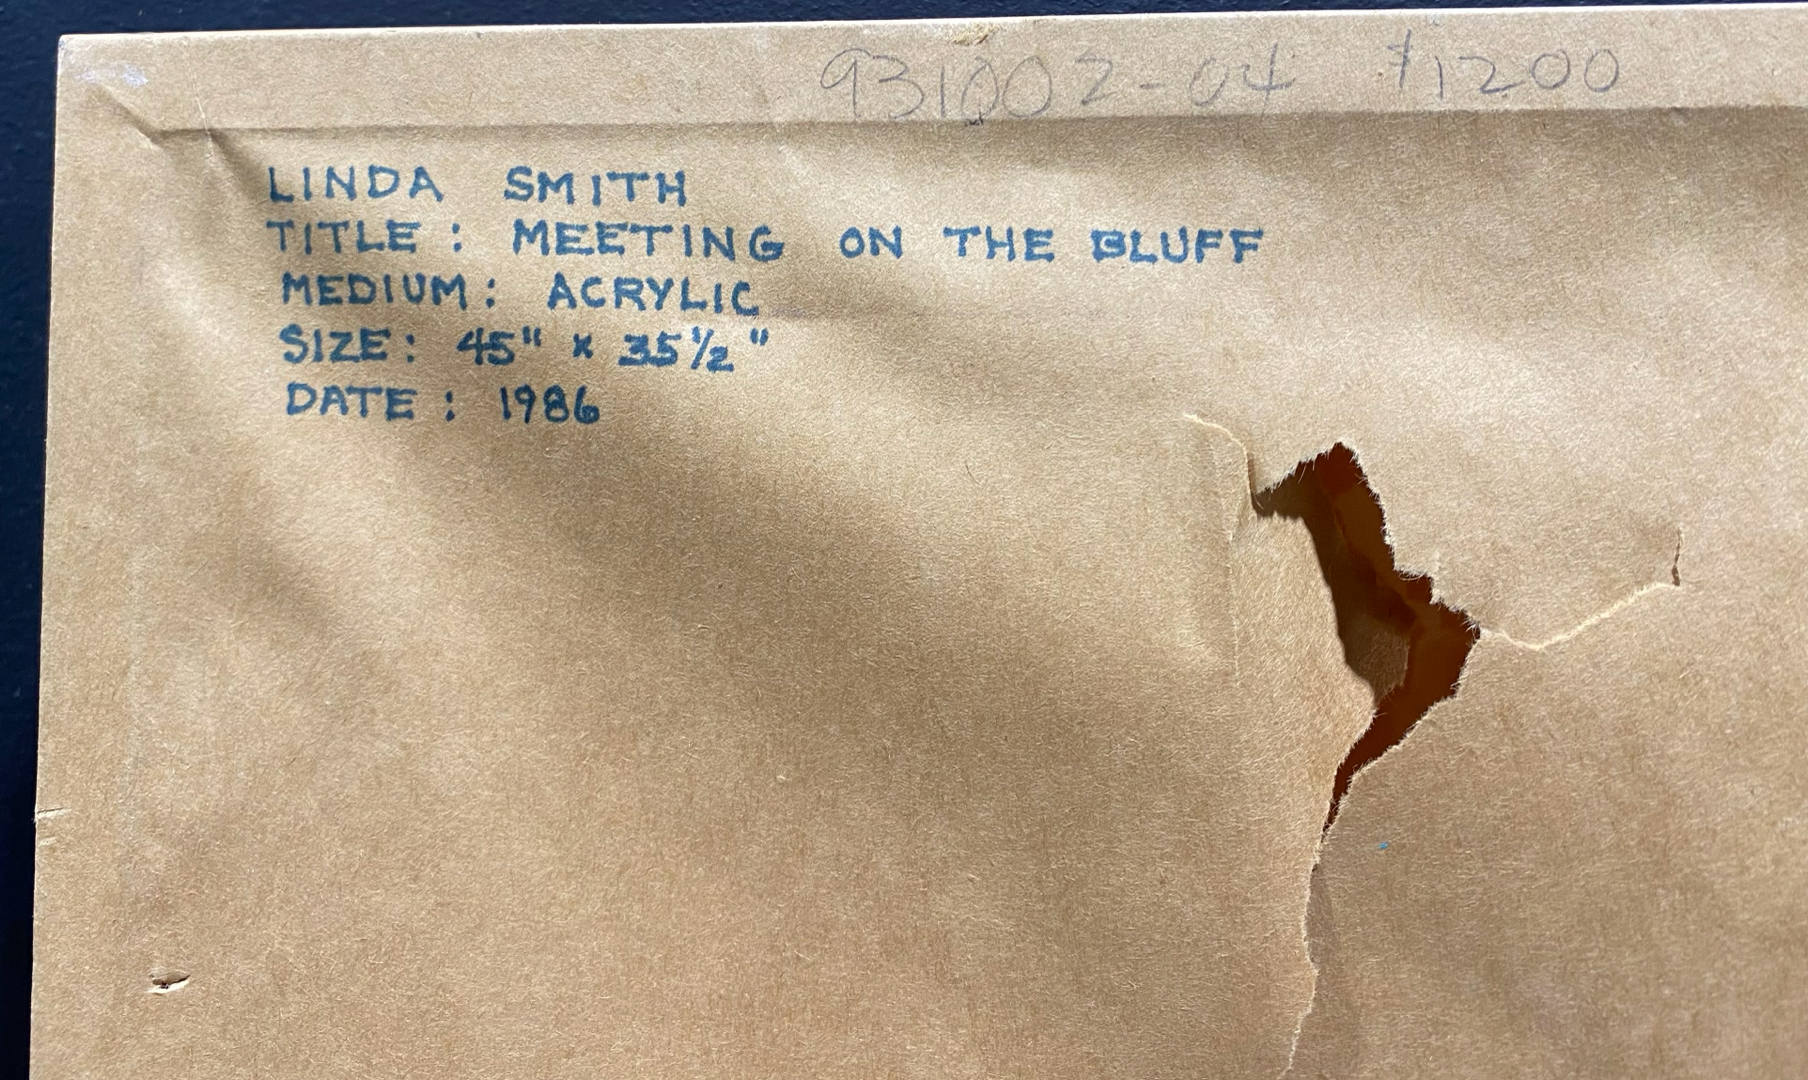 931002-04 $1200
LINDA SMITH
TITLE: MEETING ON THE BLUFF
MEDIUM: ACRYLIC
SIZE: 45" x 35½"
DATE: 1986